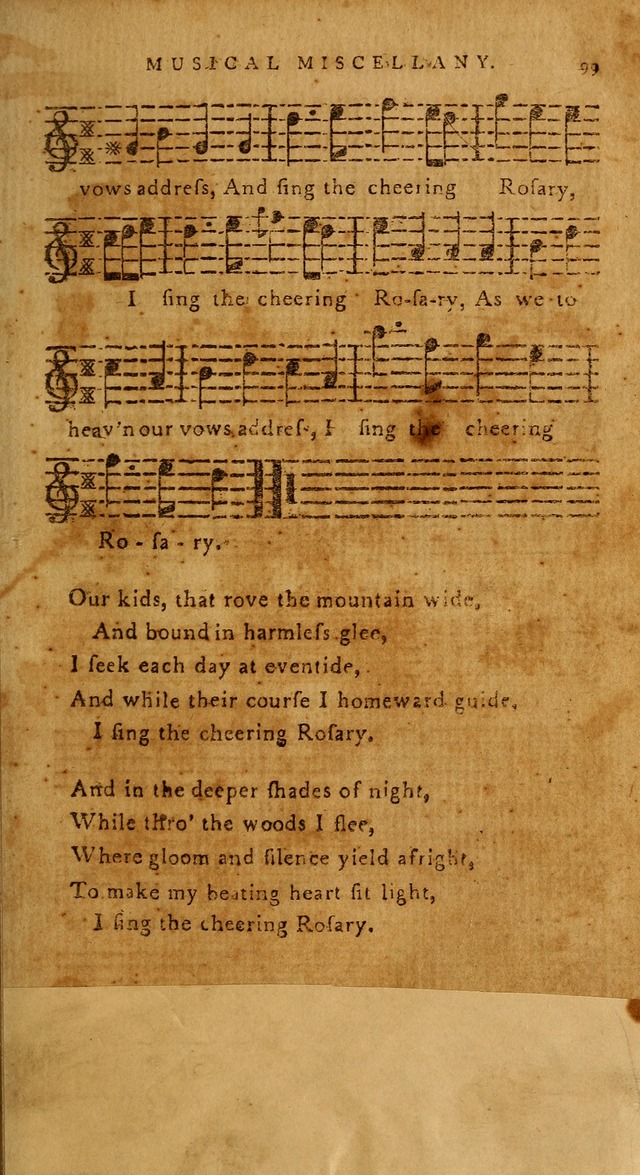 MUSICAL MISCELLANY. 99
vows addreſs, And ſing the cheering Roſary,
I ſing the cheering Ro-ſa-ry, As we to
heav'n our vows addreſs, I ſing the cheering
Ro - ſa - ry.
Our kids, that rove the mountain wide,
And bound in harmleſs glee,
I ſeek each day at eventide,
And while their courſe I homeward guide,
I ſing the cheering Roſary.
And in the deeper ſhades of night,
While thro' the woods I flee,
Where gloom and ſilence yield afright,
To make my beating heart ſit light,
I ſing the cheering Roſary.